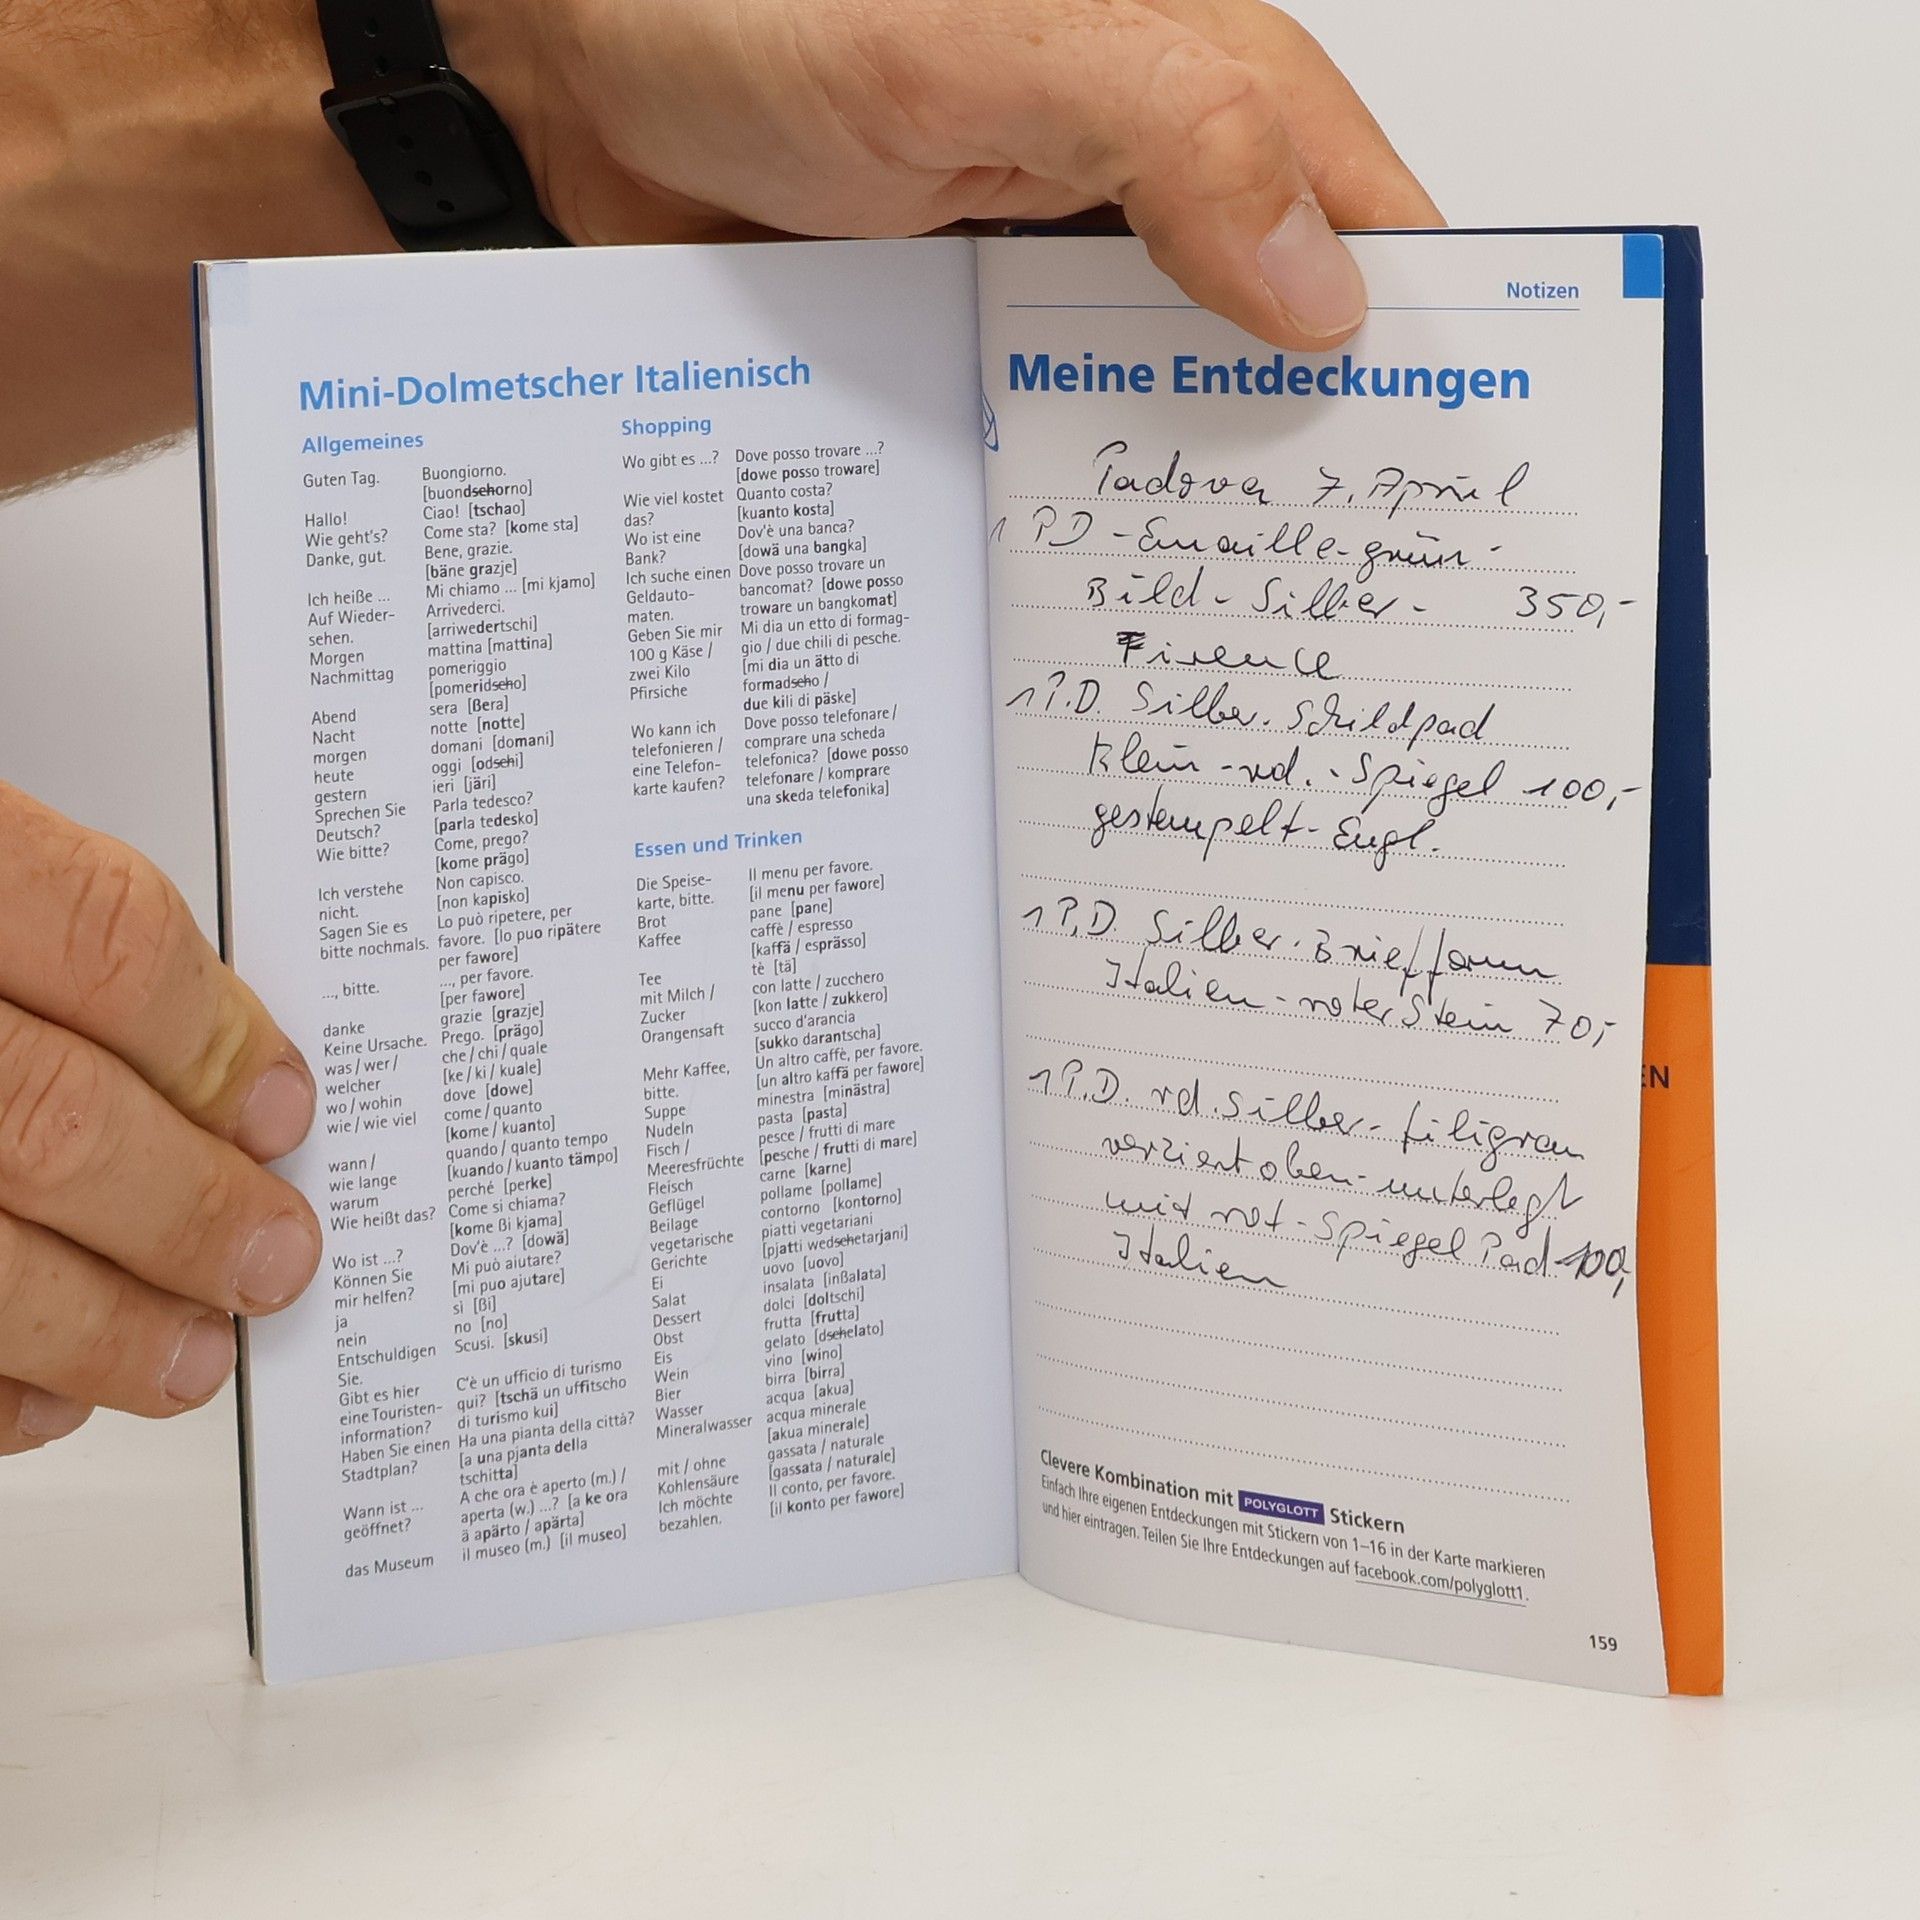 Mini-Dolmetscher Italienisch
Allgemeines
Guten Tag. Buongiorno.
[buondsehorno]
Hallo! Ciao! [tschao]
Wie geht's? Come sta? [kome sta]
Danke, gut. Bene, grazie.
[bäne grazje]
Ich heiße ... Mi chiamo ... [mi kjamo]
Auf Wieder- Arrivederci.
sehen. [arriwedertschi]
Morgen mattina [mattina]
Nachmittag pomeriggio
[pomeridseho]
Abend sera [ßera]
Nacht notte [notte]
morgen domani [domani]
heute oggi [odsehi]
gestern ieri [järi]
Sprechen Sie Parla tedesco?
Deutsch? [parla tedesko]
Wie bitte? Come, prego?
[kome prägo]
Ich verstehe Non capisco.
nicht. [non kapisko]
Sagen Sie es Lo può ripetere, per
bitte nochmals. favore. [lo puo ripätere
per fawore]
..., bitte. ..., per favore.
[per fawore]
danke grazie [grazje]
Keine Ursache. Prego. [prägo]
was / wer / che / chi / quale
welcher [ke / ki / kuale]
wo / wohin dove [dowe]
wie / wie viel come / quanto
[kome / kuanto]
wann / quando / quanto tempo
wie lange [kuando / kuanto tämpo]
warum perché [perke]
Wie heißt das? Come si chiama?
[kome ßi kjama]
Wo ist ...? Dov'è ...? [dowä]
Können Sie Mi può aiutare?
mir helfen? [mi puo ajutare]
ja sì [ßi]
nein no [no]
Entschuldigen Scusi. [skusi]
Sie.
Gibt es hier C'è un ufficio di turismo
eine Touristen- qui? [tschä un uffitscho
information? di turismo kui]
Haben Sie einen Ha una pianta della città?
Stadtplan? [a una pjanta della
tschitta]
Wann ist ... A che ora è aperto (m.) /
geöffnet? aperta (w.) ...? [a ke ora
ä apärto / apärta]
das Museum il museo (m.) [il museo]
Shopping
Wo gibt es ...? Dove posso trovare ...?
[dowe posso troware]
Wie viel kostet Quanto costa?
das? [kuanto kosta]
Wo ist eine Dov'è una banca?
Bank? [dowä una bangka]
Ich suche einen Dove posso trovare un
Geldauto- bancomat? [dowe posso
maten. troware un bangkomat]
Geben Sie mir Mi dia un etto di formag-
100 g Käse / gio / due chili di pesche.
zwei Kilo [mi dia un ätto di
Pfirsiche formadseho /
due kili di päske]
Wo kann ich Dove posso telefonare /
telefonieren / comprare una scheda
eine Telefon- telefonica? [dowe posso
karte kaufen? telefonare / komprare
una skeda telefonika]
Essen und Trinken
Die Speise- Il menu per favore.
karte, bitte. [il menu per fawore]
Brot pane [pane]
Kaffee caffè / espresso
[kaffä / esprässo]
Tee tè [tä]
mit Milch / con latte / zucchero
Zucker [kon latte / zukkero]
Orangensaft succo d'arancia
[sukko darantscha]
Mehr Kaffee, Un altro caffè, per favore.
bitte. [un altro kaffä per fawore]
Suppe minestra [minästra]
Nudeln pasta [pasta]
Fisch / pesce / frutti di mare
Meeresfrüchte [pesche / frutti di mare]
Fleisch carne [karne]
Geflügel pollame [pollame]
Beilage contorno [kontorno]
vegetarische piatti vegetariani
Gerichte [pjatti wedsehetarjani]
Ei uovo [uovo]
Salat insalata [inßalata]
Dessert dolci [doltschi]
Obst frutta [frutta]
Eis gelato [dsehelato]
Wein vino [wino]
Bier birra [birra]
Wasser acqua [akua]
Mineralwasser acqua minerale
[akua minerale]
mit / ohne gassata / naturale
Kohlensäure [gassata / naturale]
Ich möchte Il conto, per favore.
bezahlen. [il konto per fawore]
Notizen
Meine Entdeckungen
Padova 7. April
1 P.D - Emaille-grün -
Bild - Silber - 350,-
Firence
1 P.D. Silber. Schildpad
Klein - rd. - Spiegel 100,-
gestempelt - Engl.
1 P.D. Silber. Briefform
Italien - roter Stein 70,-
1 P.D. rd. Silber - filigran
verziert oben - unterlegt
mit rot - Spiegel Pad - 100,
Italien
Clevere Kombination mit POLYGLOTT Stickern
Einfach Ihre eigenen Entdeckungen mit Stickern von 1–16 in der Karte markieren
und hier eintragen. Teilen Sie Ihre Entdeckungen auf facebook.com/polyglott1.
159
EN